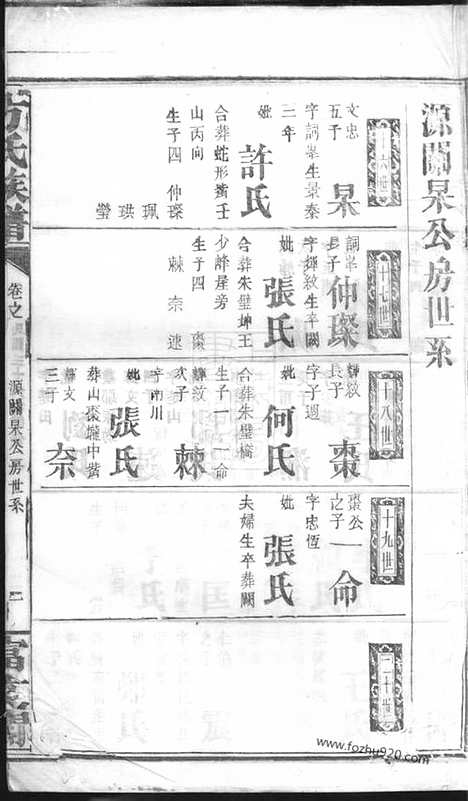 源關杲公房世系
十六世
文忠
五子
杲
字詞峯生景泰
三年
妣
許氏
合葬蛇形嘴壬
山丙向
生子四 仲璨
珮
珙
瑩
十七世
詞峯
長子
仲璨
字輝紋生辛闕
妣
張氏
合葬朱璧坤王
少峰屋旁
生子四 棗
棘 奈 速
十八世
輝紋
長子
棗
字子週
妣
何氏
合葬朱璧橋
生子一 一命
輝紋
次子
棘
字南川
妣
張氏
葬山棗壠中嘴
輝文
三子
奈
十九世
棗公
之子
一命
字忠恆
妣
張氏
夫婦生卒葬闕
二十世
方氏族譜
卷之
源關杲公房世系
www.fozhu920.com